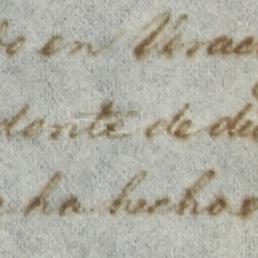 en Verac
dente de di
ha hecho